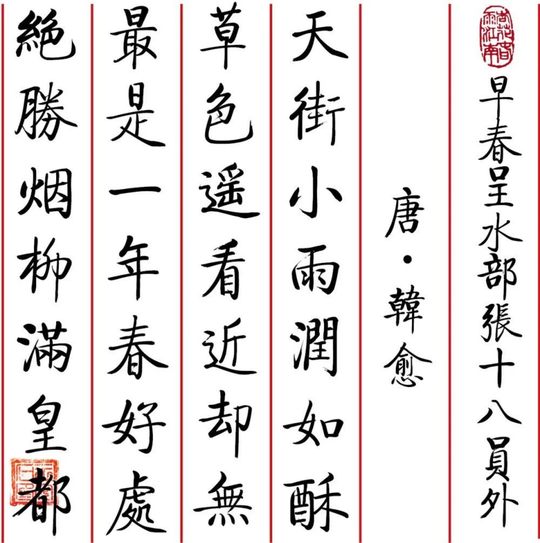 早春呈水部張十八員外
唐·韓愈
天街小雨潤如酥
草色遥看近却無
最是一年春好處
絕勝烟柳滿皇都